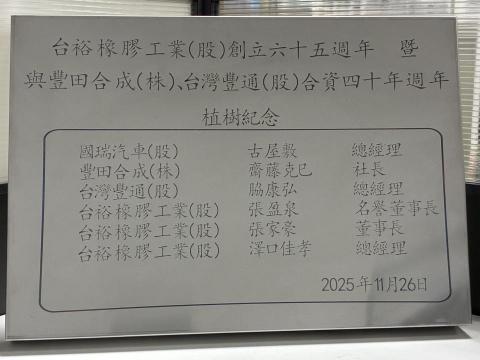 台裕橡膠工業(股)創立六十五週年 暨
與豐田合成(株)、台灣豐通(股)合資四十年週年
植樹紀念
國瑞汽車(股) 古屋敷 總經理
豐田合成(株) 齋藤克巳 社長
台灣豐通(股) 脇康弘 總經理
台裕橡膠工業(股) 張盈泉 名譽董事長
台裕橡膠工業(股) 張家豪 董事長
台裕橡膠工業(股) 澤口佳孝 總經理
2025年11月26日